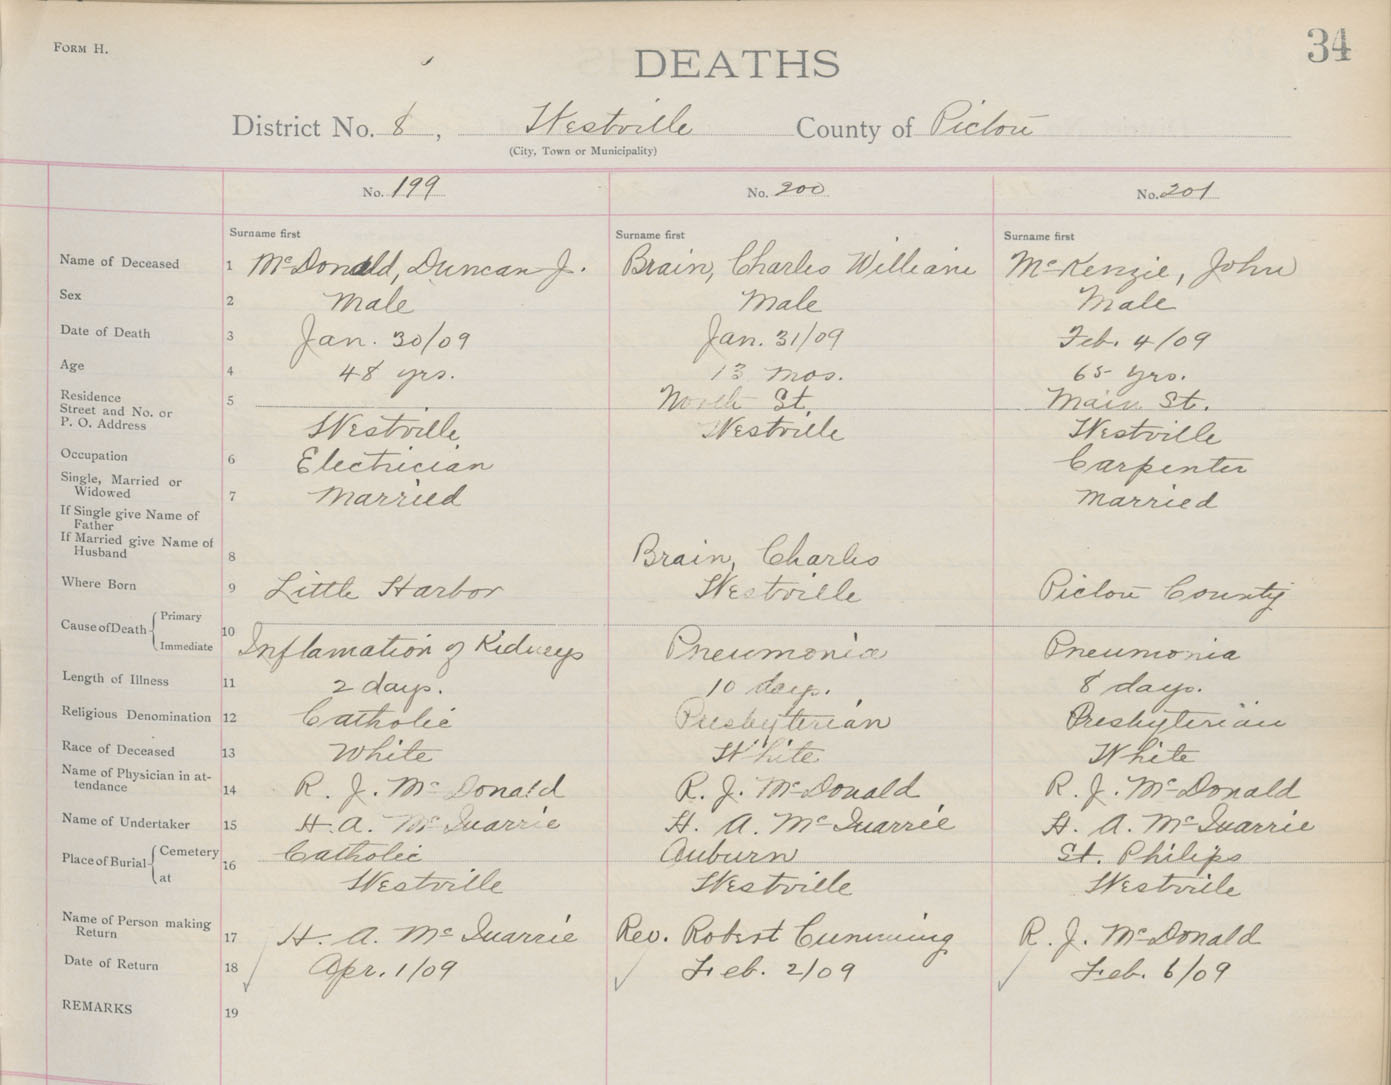 FORM H.
DEATHS
34
District No. 8, Westville County of Pictou
(City, Town or Municipality)
No. 199 No. 200 No. 201
Surname first Surname first Surname first
Name of Deceased 1 McDonald, Duncan J. Brain, Charles William McKenzie, John
Sex 2 Male Male Male
Date of Death 3 Jan. 30/09 Jan. 31/09 Feb. 4/09
Age 4 48 yrs. 13 mos. 65 yrs.
Residence 5 North St. Main St.
Street and No. or
P. O. Address Westville Westville Westville
Occupation 6 Electrician Carpenter
Single, Married or
Widowed 7 Married Married
If Single give Name of
Father
If Married give Name of
Husband 8 Brain, Charles
Where Born 9 Little Harbor Westville Pictou County
Cause of Death Primary 10
Immediate Inflamation of Kidneys Pneumonia Pneumonia
Length of Illness 11 2 days. 10 days. 8 days.
Religious Denomination 12 Catholic Presbyterian Presbyterian
Race of Deceased 13 White White White
Name of Physician in at-
tendance 14 R. J. McDonald R. J. McDonald R. J. McDonald
Name of Undertaker 15 H. A. McQuarrie H. A. McQuarrie H. A. McQuarrie
Place of Burial Cemetery 16 Catholic Auburn St. Philips
at Westville Westville Westville
Name of Person making
Return 17 H. A. McQuarrie Rev. Robert Cumming R. J. McDonald
Date of Return 18 Apr. 1/09 Feb. 2/09 Feb. 6/09
REMARKS 19